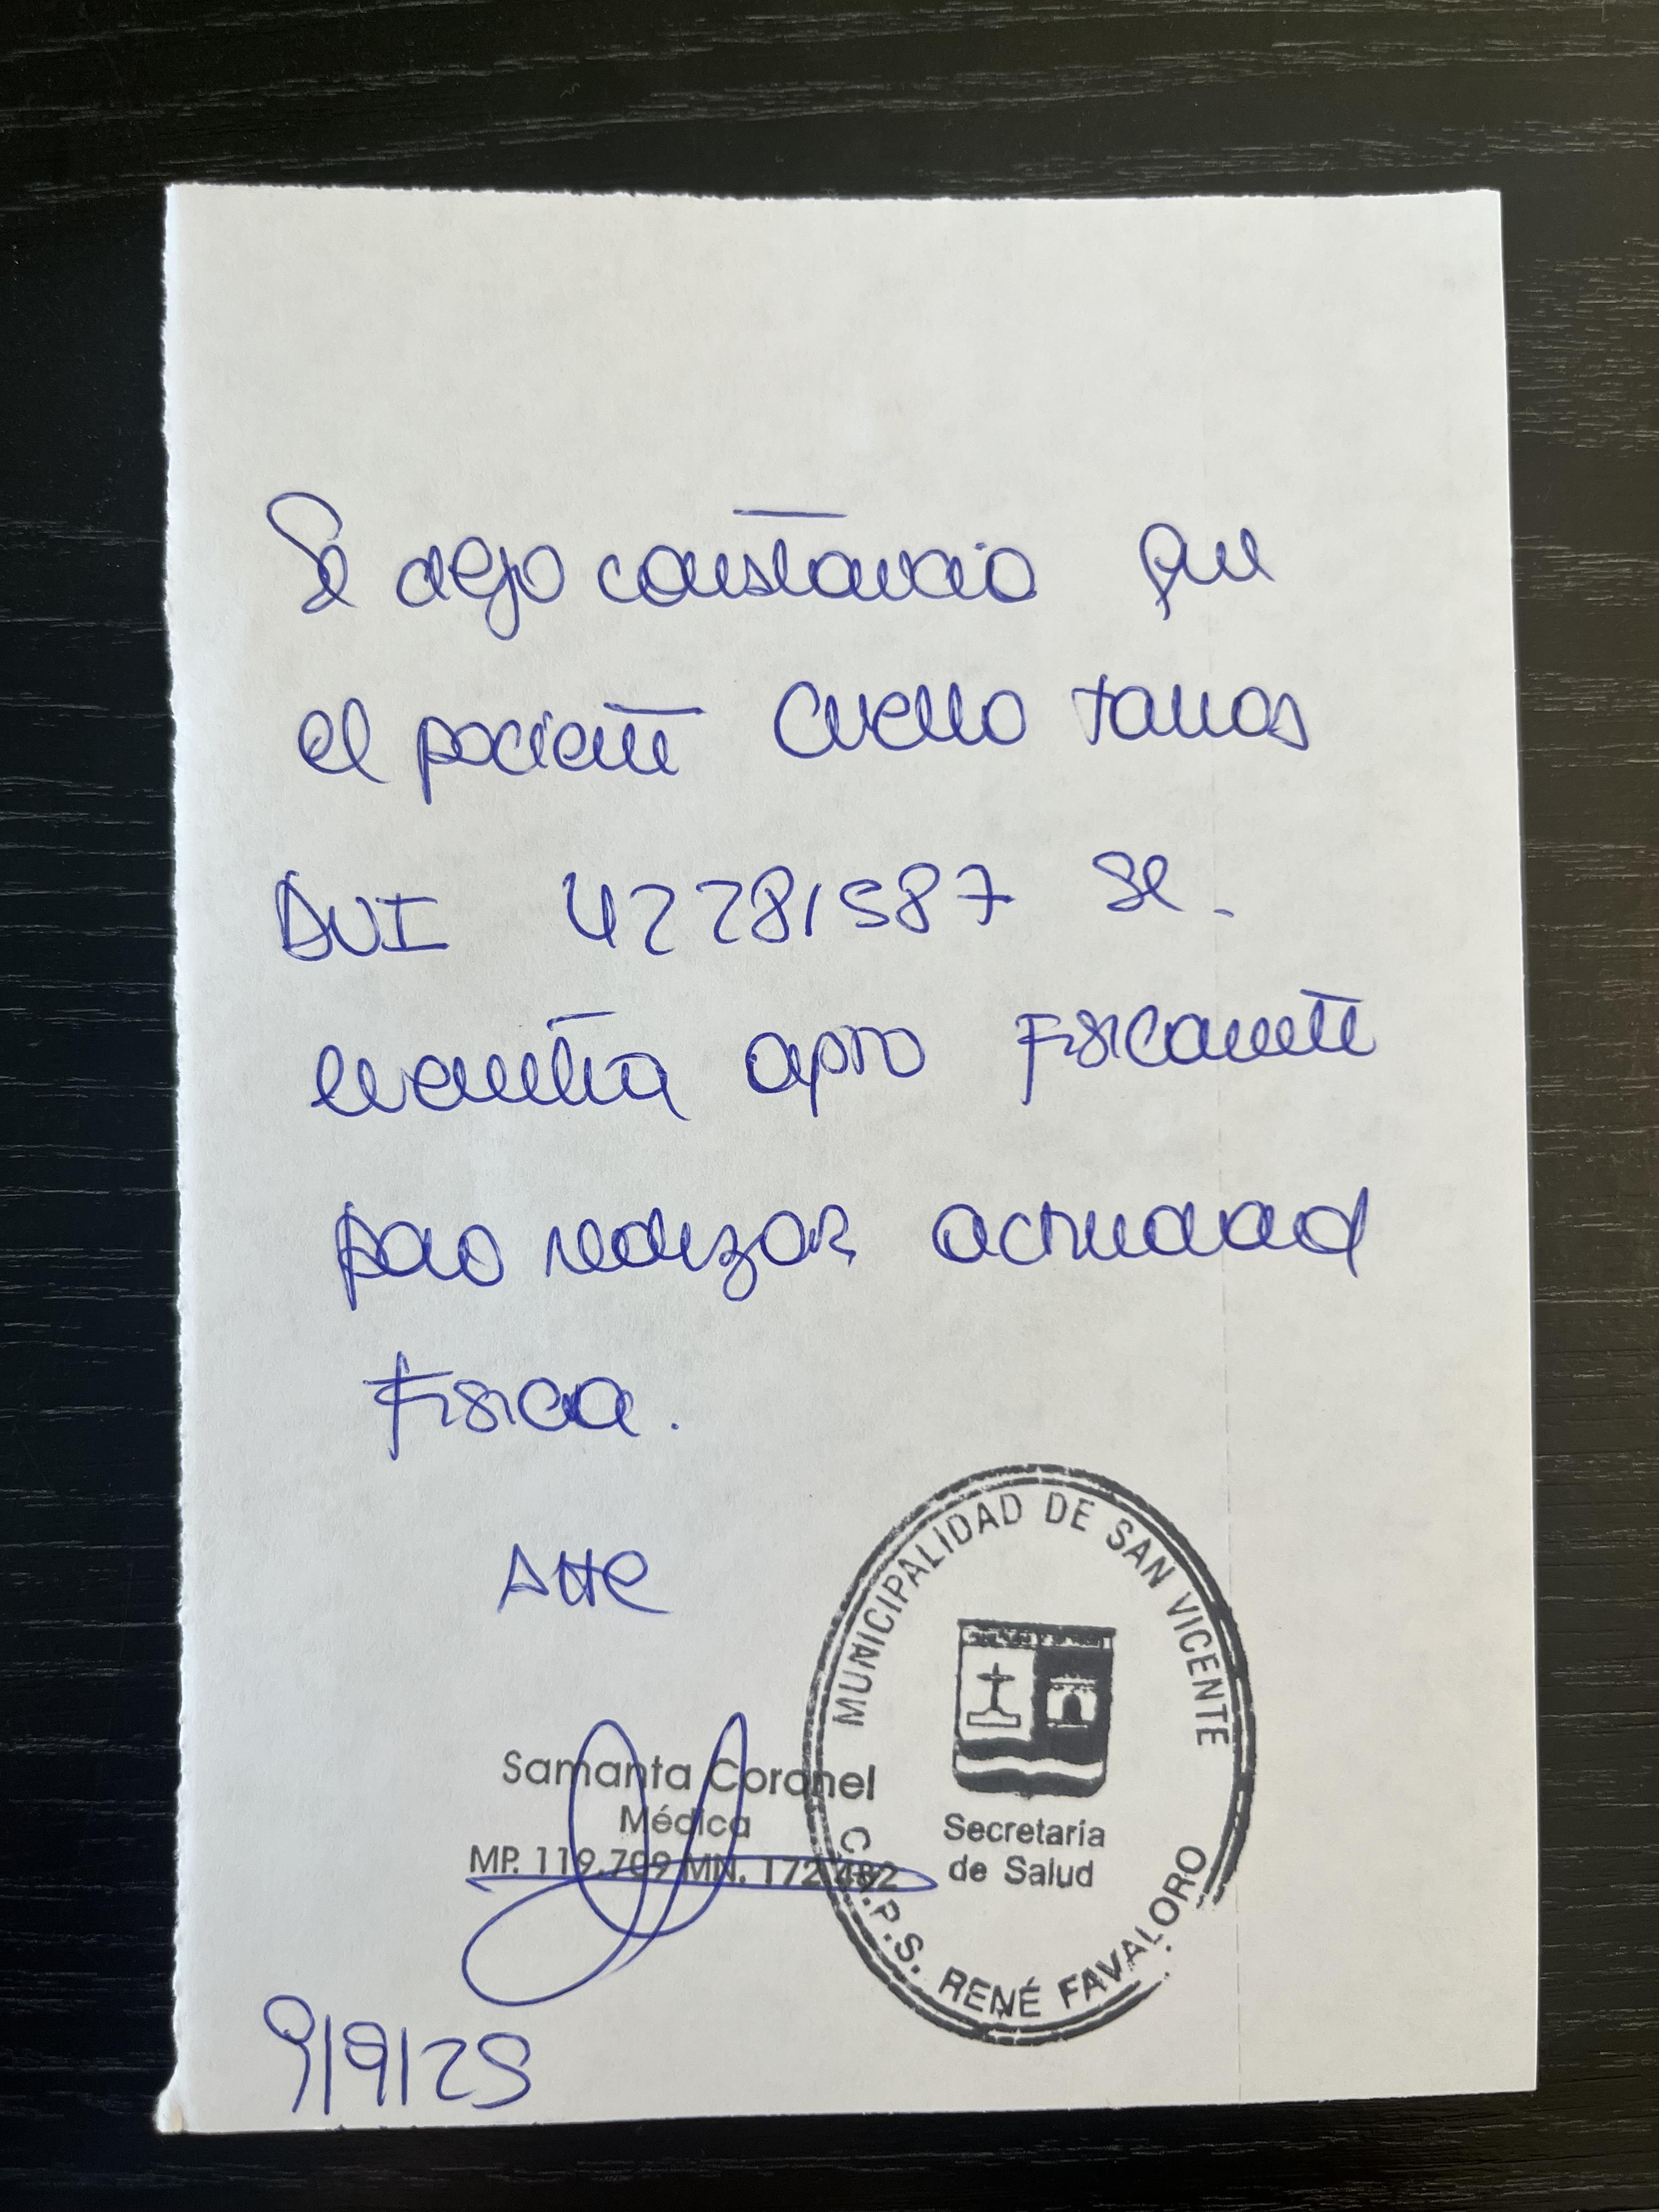 Se deja constancia que
el paciente Cuello Tomas
DNI 42281587 se
encuentra apto Fisicamente
para realizar actividad
Fisica.
Atte
Samanta Coronel
Médica
MP. 119.709 MN. 172.482
MUNICIPALIDAD DE SAN VICENTE
Secretaría
de Salud
C.A.P.S. RENÉ FAVALORO
9/9/25